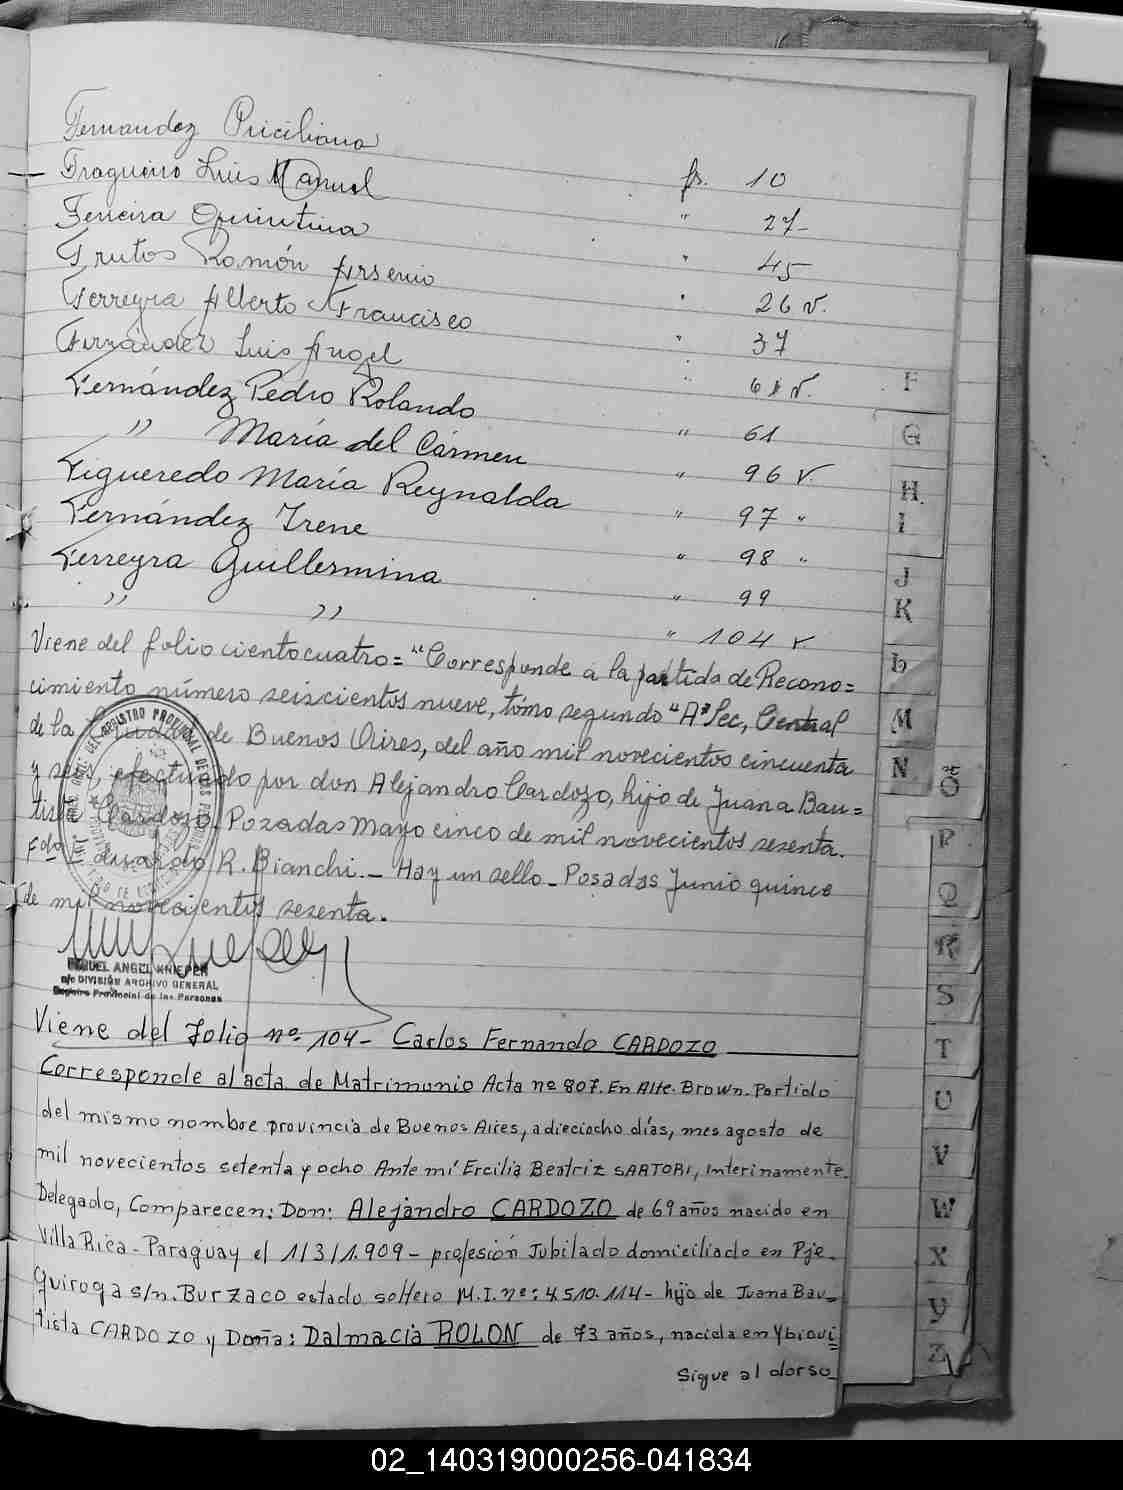 Fernandez Priciliana
Fragueiro Luis Manuel fs. 10
Ferreira Quintina " 27-
Frutos Ramón Arsenio " 45
Ferreyra Alberto Francisco " 26 v.
Fernández Luis Angel " 37
Fernández Pedro Rolando " 61 v.
" María del Cármen " 61
Figueredo María Reynalda " 96 v.
Fernández Irene " 97 "
Ferreyra Guillermina " 98 "
" " " 99
" 104 v.
Viene del folio cientocuatro= "Corresponde a la partida de Recono=
cimiento número seiscientos nueve, tómo segundo "A" Sec, Central
de la Ciudad de Buenos Aires, del año mil novecientos cincuenta
y seis, efectuado por don Alejandro Cardozo, hijo de Juana Bau=
tista Cardozo. Pozadas Mayo cinco de mil novecientos sesenta.
Fdo Eduardo R. Bianchi.- Hay un sello- Posadas Junio quince
de mil novecientos sesenta.
MIGUEL ANGEL KNIEPER
a/c DIVISIÓN ARCHIVO GENERAL
Registro Provincial de las Personas
Viene del Folio nº 104- Carlos Fernando CARDOZO
Corresponde al acta de Matrimonio Acta nº 807. En Alte. Brown. Partido
del mismo nombre provincia de Buenos Aires, a dieciocho días, mes agosto de
mil novecientos setenta y ocho Ante mí Ercilia Beatriz SARTORI, Interinamente.
Delegado, Comparecen: Don: Alejandro CARDOZO de 69 años nacido en
Villa Rica- Paraguay el 1/3/1.909- profesión Jubilado domiciliado en Pje.
Quiroga s/n. Burzaco estado soltero M.I. nº: 4.510.114- hijo de Juana Bau=
tista CARDOZO y Doña: Dalmacia ROLON de 73 años, nacida en Ybicui
Sigue al dorso-
F
G
H
I
J
K
L
M
N
Ñ
O
P
Q
R
S
T
U
V
W
X
Y
Z
02_140319000256-041834